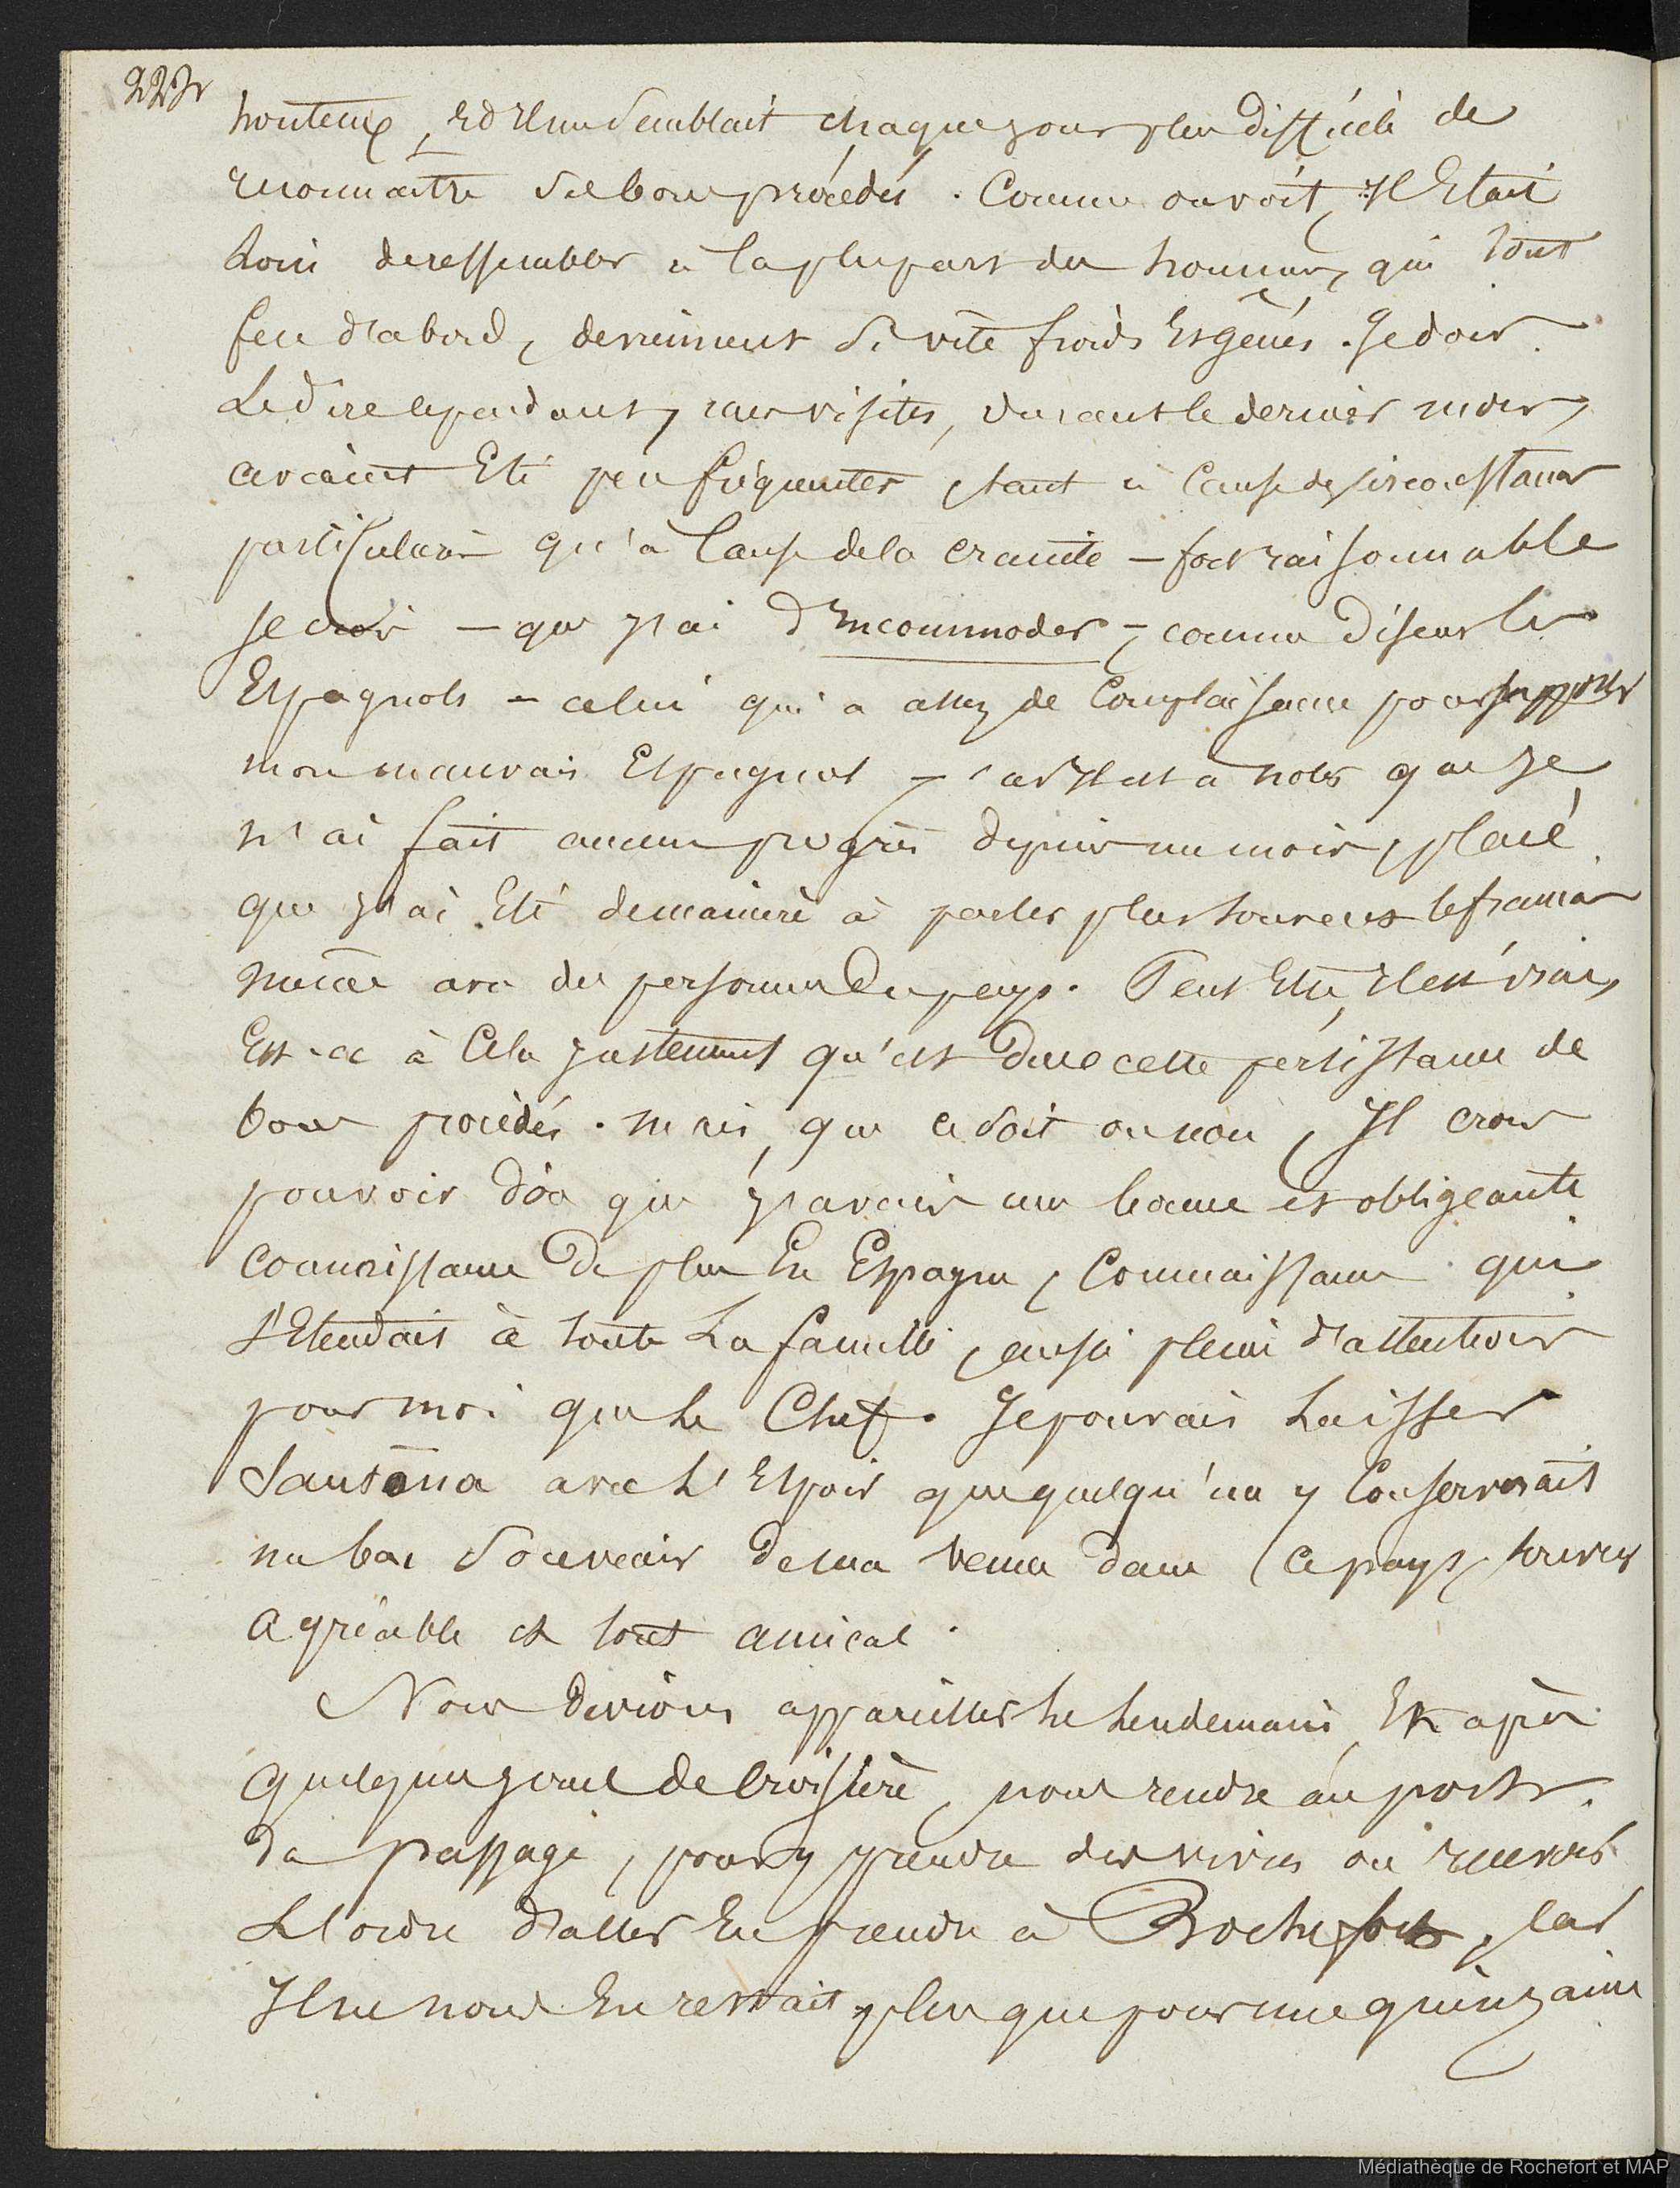 honteux, et Il me semblait chaque jour plus difficile de
reconnaître de si bons procédés. Comme on voit, Il Etait
Loin de ressembler à la plupart des hommes, qui tout
feu d'abord, deviennent si vite froids Et gênés. Je dois
Le dire cependant, mes visites, durant le dernier mois,
avaient Eté peu fréquentes, tant à Cause de Circonstances
particulières qu'à Cause de la crainte – fort raisonnable
je crois – que j'ai d'Incommoder –, comme disent les
Espagnols – celui qui a assez de Complaisance pour supporter
mon mauvais Espagnol – car Il est à noter que je
n'ai fait aucun progrès depuis un mois, placé
que j'ai Eté de manière à parler plus souvent le français
même avec des personnes du pays. Peut Etre, Il est vrai,
Est-ce à Cela justement qu'est due cette persistance de
bons procédés. mais, que ce soit ou non, Il crois
pouvoir dire que j'avais une bonne et obligeante
Connaissance De plus En Espagne, Connaissance qui
s'Etendait à toute La famille, aussi pleine d'attentions
pour moi que le Chef. Je pouvais Laisser
Santoña avec L'Espoir que quelqu'un y Conserverait
un bon Souvenir de ma venue dans Ce pays, souvenir
agréable et tout amical.
Nous devions appareiller Le Lendemain, Et après
quelques jours de Croisière, nous rendre au port
du passage, pour y prendre des vivres ou recevoir
L'ordre d'aller En prendre à Rochefort, Car
Il ne nous En restait plus que pour une quinzaine
Médiathèque de Rochefort et MAP